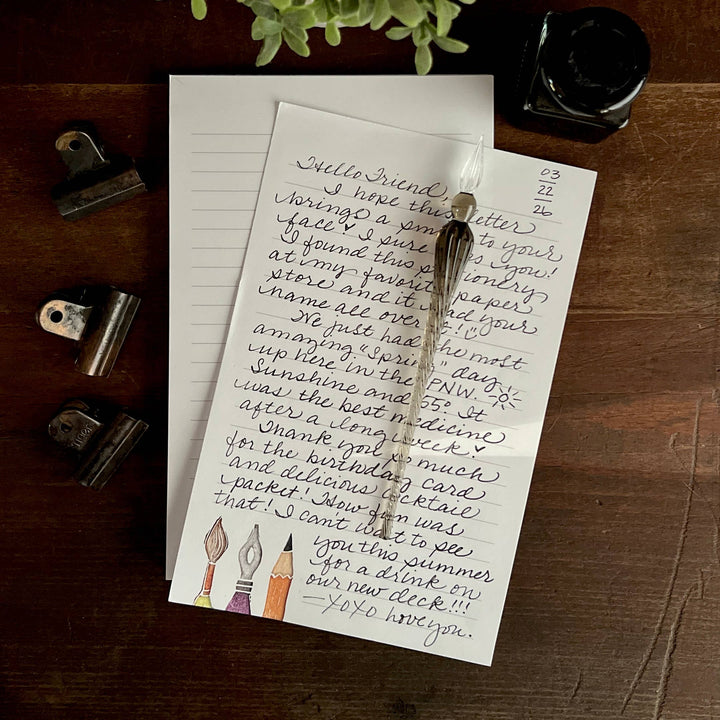 03
22
26
Hello Friend,
I hope this letter
brings a to your
face ♥ I sure you!
I found this stationery
at my favorite paper
store and it had your
name all over it!
We just had the most
amazing "Spring" day
up here in the PNW.
Sunshine and 55° It
was the best medicine
after a long week. ♥
Thank you so much
for the birthday card
and delicious cocktail
packet! How fun was
that! I can't wait to see
you this summer
for a drink on
our new deck!!!
—XOXO Love you.